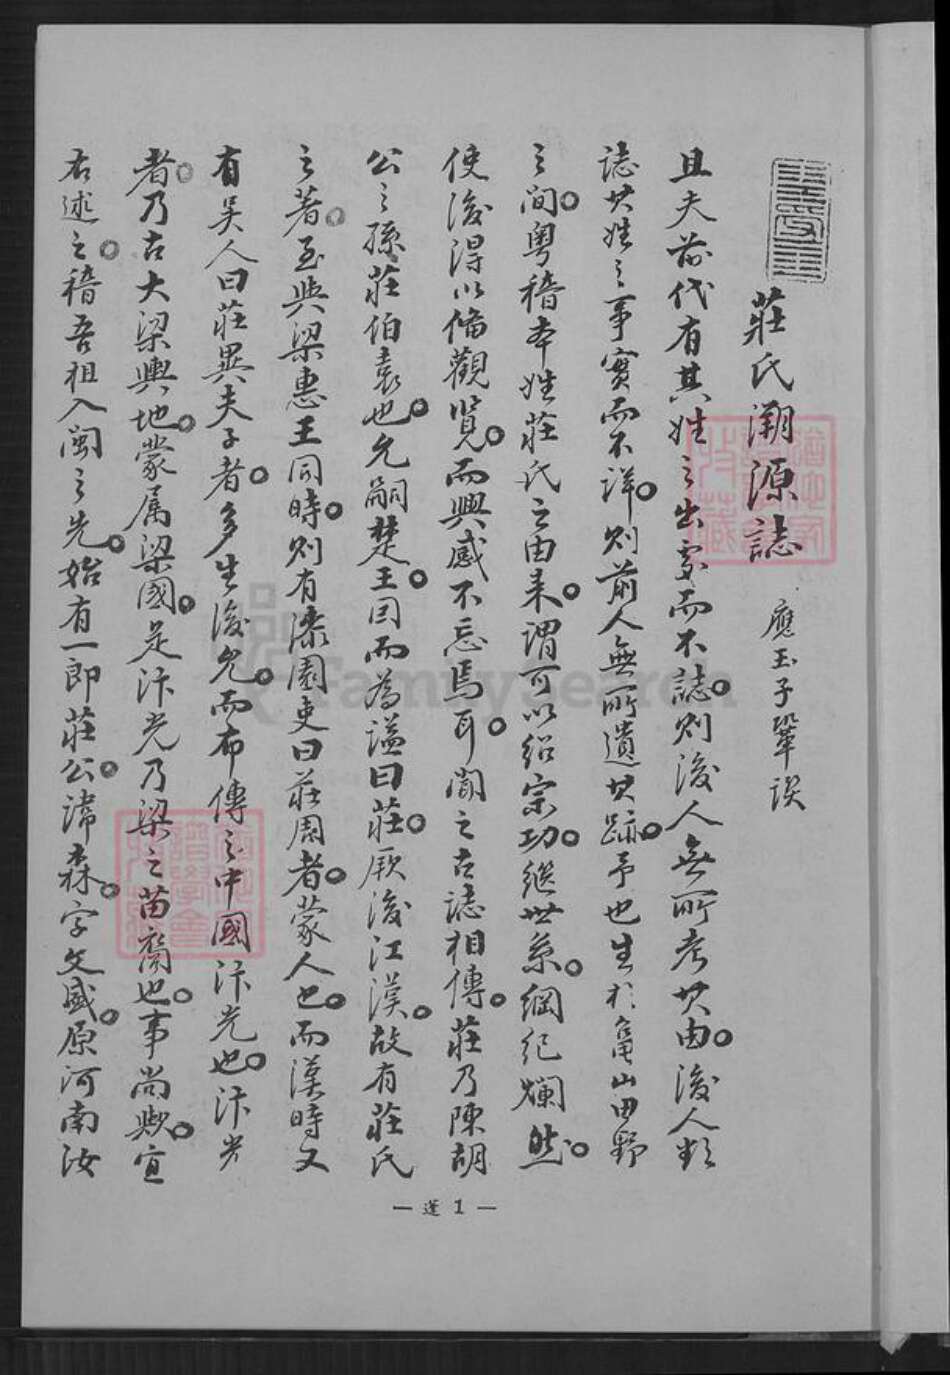 莊氏溯源誌 應玉子鞏謨
且夫前代有其姓之出處而不誌。則後人無所考其由。後人欲
誌其姓之事實而不詳。則前人無所遺其跡。予也生於龜山田野
之间。粤稽本姓莊氏之由来。谓可以绍宗功。继世系。綱纪爛然。
使後得以俻觀覽。而興感不忘焉耳。聞之古誌相傳。莊乃陳胡
公之孫。莊伯袁也。允嗣楚王。因而為謚曰莊。厥後江漢。故有莊氏
之著。至與梁惠王同時。则有漆園吏曰莊周者。蒙人也。而漢時又
有吴人曰莊異夫子者。多生後允。而布傳之中國汴光也。汴光
者。乃古大梁輿地。蒙属梁國。是汴光乃梁之苗裔也。事尚欺。宣
右述之。稽吾祖入闽之先。始有一郎莊公。諱森。字文盛。原河南汝
— 蓬 1 —
FamilySearch